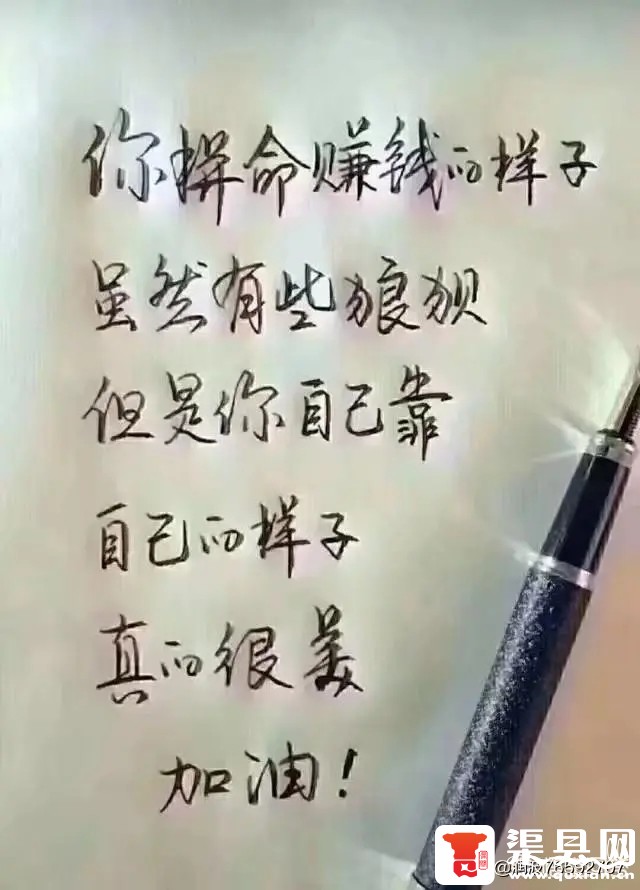 你拼命赚钱的样子
虽然有些狼狈
但是你自己靠
自己的样子
真的很美
加油！
渠县网
www.quxian.cn